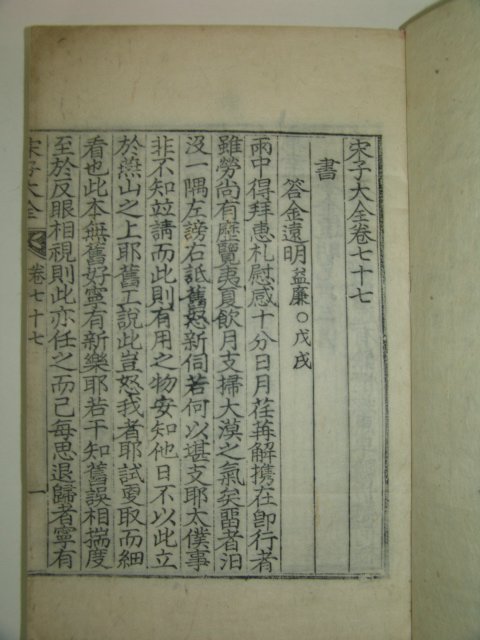 宋子大全卷七十七
書
答金遠明 益廉○戊戌
雨中得拜惠札慰感十分日月荏苒解携在卽行者
雖勞尚有歷覽夷夏飮月支掃大漠之氣矣留者汨
沒一隅左謗右詆舊怒新伺若何以堪支耶太僕事
非不知並請而此則有用之物安知他日不以此立
於燕山之上耶舊工說此豈怒我者耶試更取而細
看也此本無舊好寧有新樂耶若干知舊誤相揣度
至於反眼相視則此亦任之而已每思退歸者寧有
宋子大全
卷七十七
一